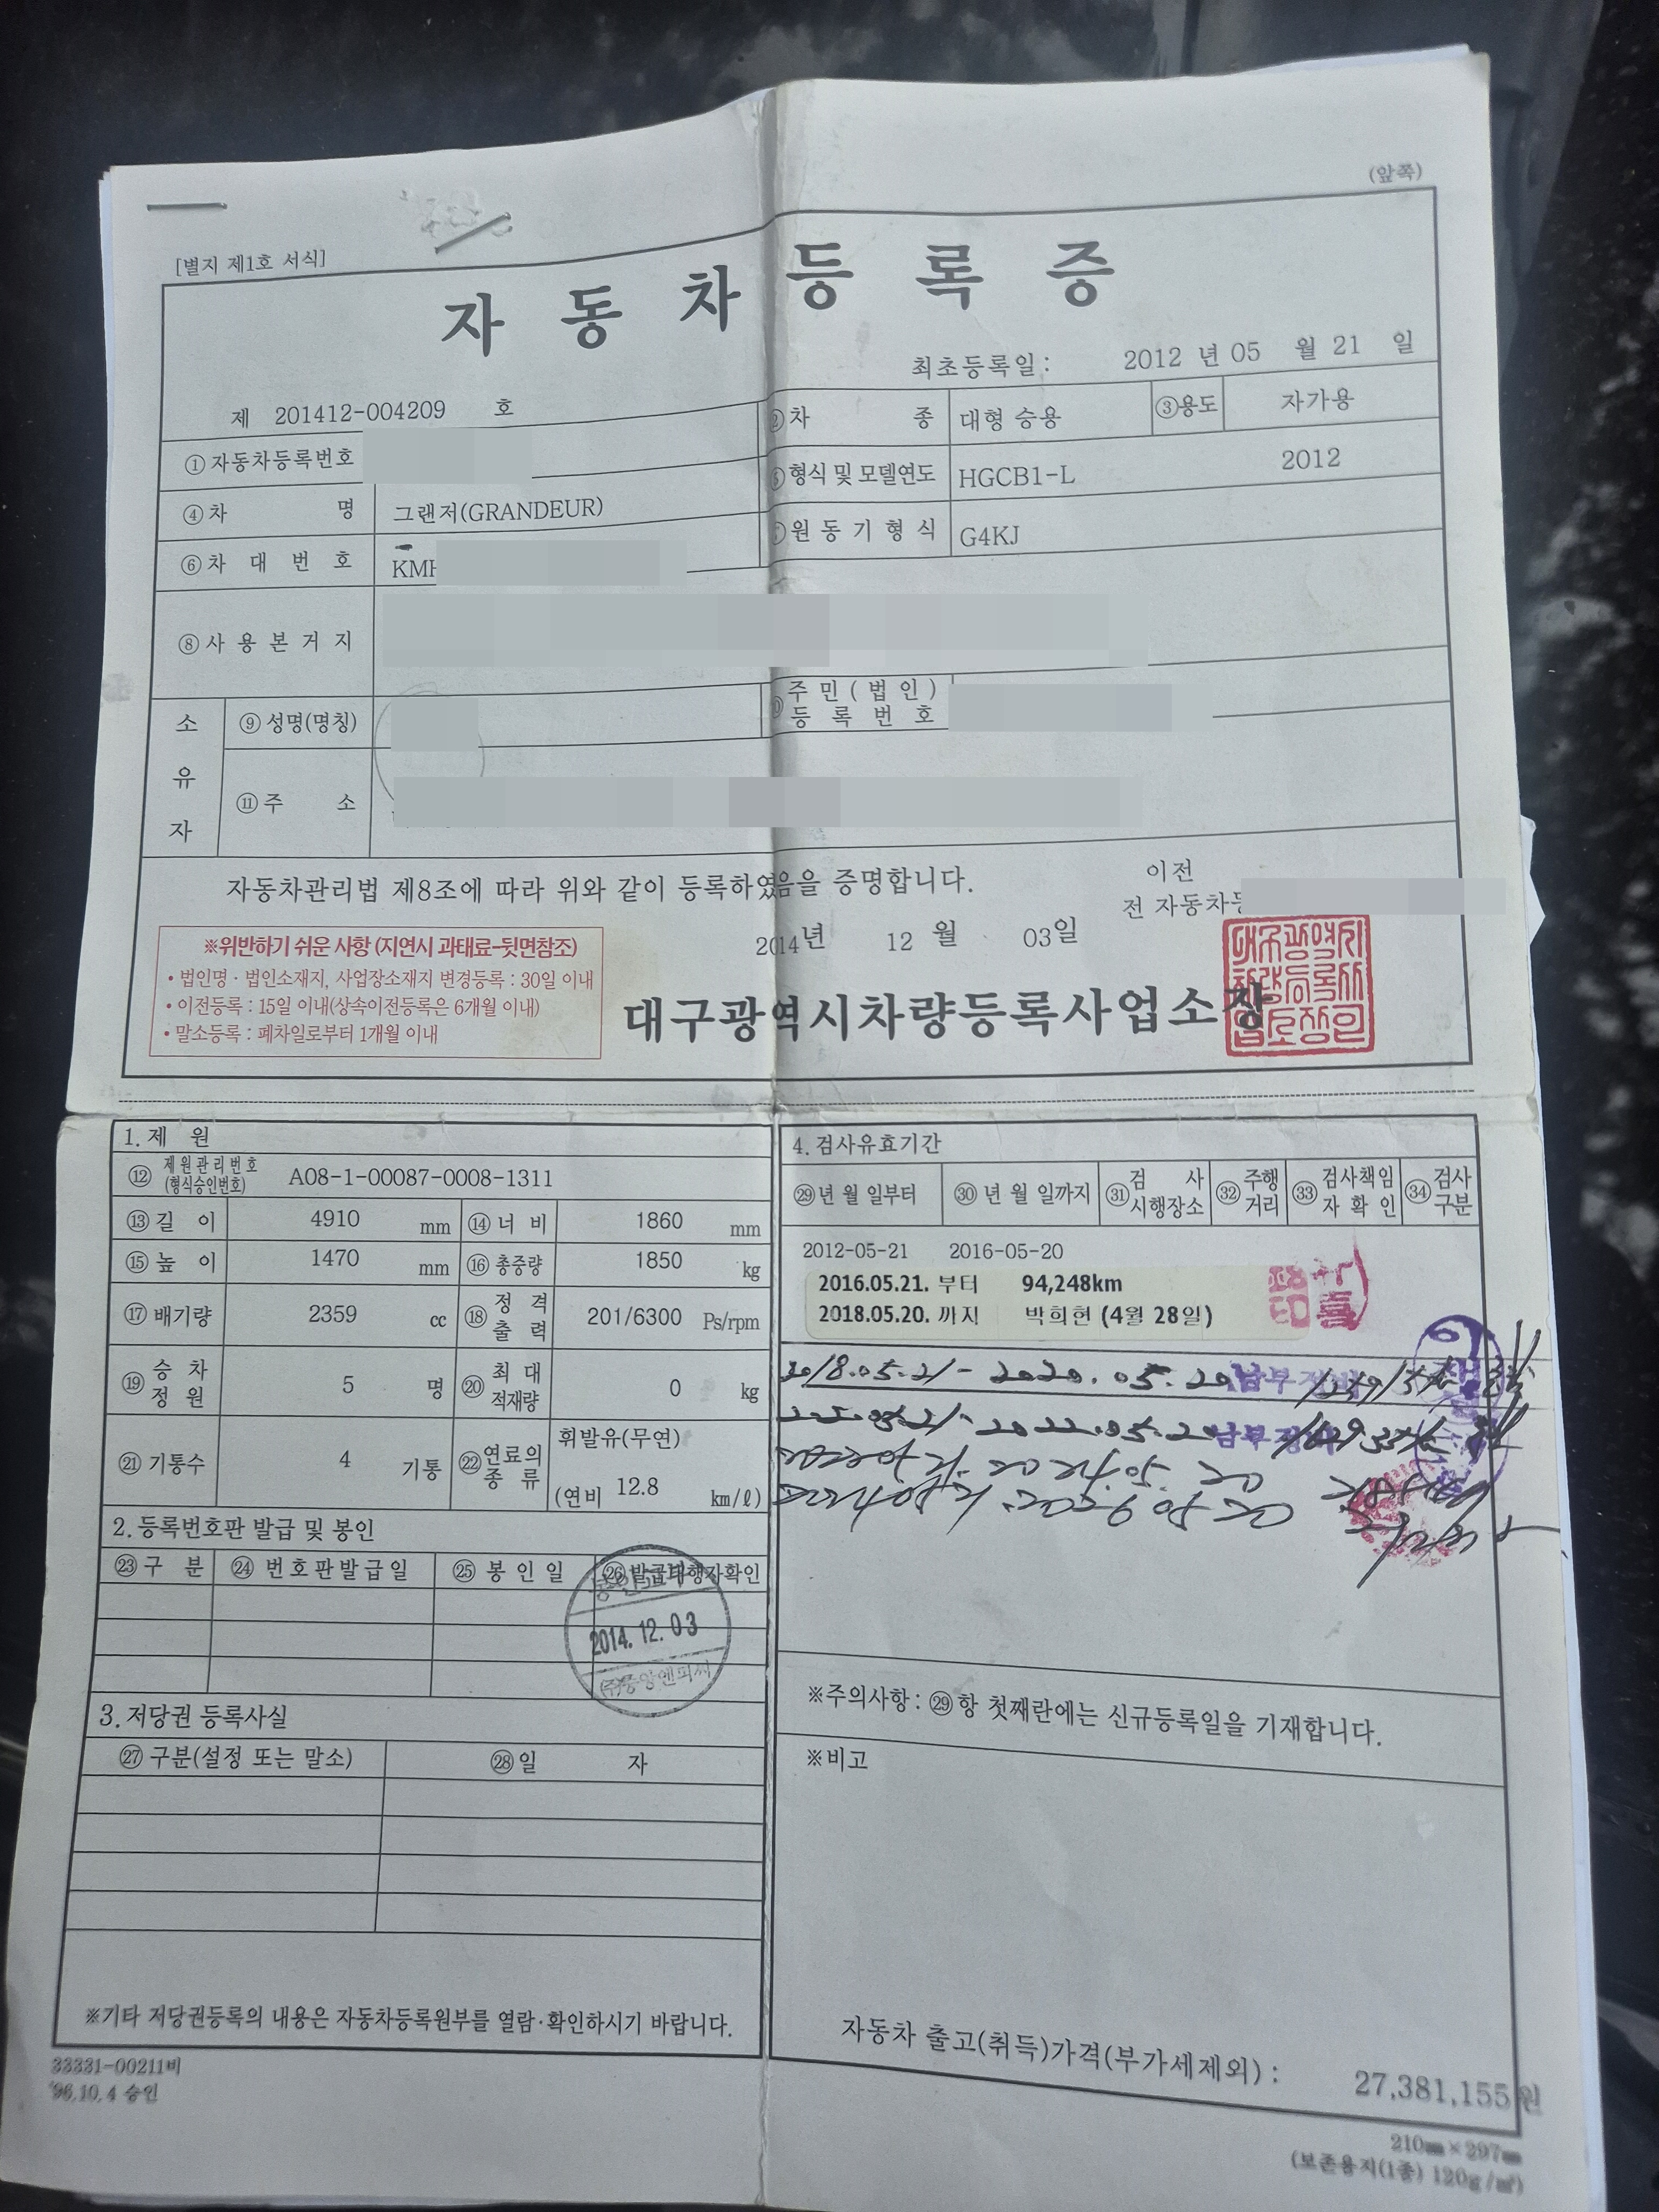 (앞쪽)
[별지 제1호 서식]
자 동 차 등 록 증
최초등록일: 2012 년 05 월 21 일
제 201412-004209 호
①자동차등록번호
②차 종 대형 승용 ③용도 자가용
④차 명 그랜저(GRANDEUR)
⑤형식 및 모델연도 HGCB1-L 2012
⑥차 대 번 호 KMH
⑦원 동 기 형 식 G4KJ
⑧사 용 본 거 지
소 유 자
⑨성명(명칭)
⑩주 민 ( 법 인 ) 등 록 번 호
⑪주 소
자동차관리법 제8조에 따라 위와 같이 등록하였음을 증명합니다.
이전
전 자동차등
2014년 12 월 03일
※위반하기 쉬운 사항 (지연시 과태료-뒷면참조)
• 법인명 · 법인소재지, 사업장소재지 변경등록 : 30일 이내
• 이전등록 : 15일 이내(상속이전등록은 6개월 이내)
• 말소등록 : 폐차일로부터 1개월 이내
대구광역시차량등록사업소장
1. 제 원
⑫ 제원관리번호 (형식승인번호) A08-1-00087-0008-1311
⑬길 이 4910 mm ⑭너 비 1860 mm
⑮높 이 1470 mm ⑯총중량 1850 kg
⑰배기량 2359 cc ⑱정 격 출 력 201/6300 Ps/rpm
⑲승 차 정 원 5 명 ⑳최 대 적재량 0 kg
㉑기통수 4 기통 ㉒연료의 종 류 휘발유(무연)
(연비 12.8 km/ℓ)
2. 등록번호판 발급 및 봉인
㉓구 분 ㉔번호판발급일 ㉕봉 인 일 ㉖발급대행자확인
2014. 12. 03
(주)중앙엔피씨
3. 저당권 등록사실
㉗구분(설정 또는 말소) ㉘일 자
※기타 저당권등록의 내용은 자동차등록원부를 열람·확인하시기 바랍니다.
4. 검사유효기간
㉙년 월 일부터 ㉚년 월 일까지 ㉛검 사 시행장소 ㉜주행 거리 ㉝검사책임 자 확 인 ㉞검사 구분
2012-05-21 2016-05-20
2016.05.21. 부터 94,248km
2018.05.20. 까지 박희헌 (4월 28일)
2018.05.21 - 2020.05.20 남부
2022.05.20 남부
2024.05.20
2026 05 20
※주의사항 : ㉙항 첫째란에는 신규등록일을 기재합니다.
※비고
자동차 출고(취득)가격(부가세제외) : 27,381,155 원
33331-00211비
'96.10.4 승인
210㎜×297㎜
(보존용지(1종) 120g/㎡)